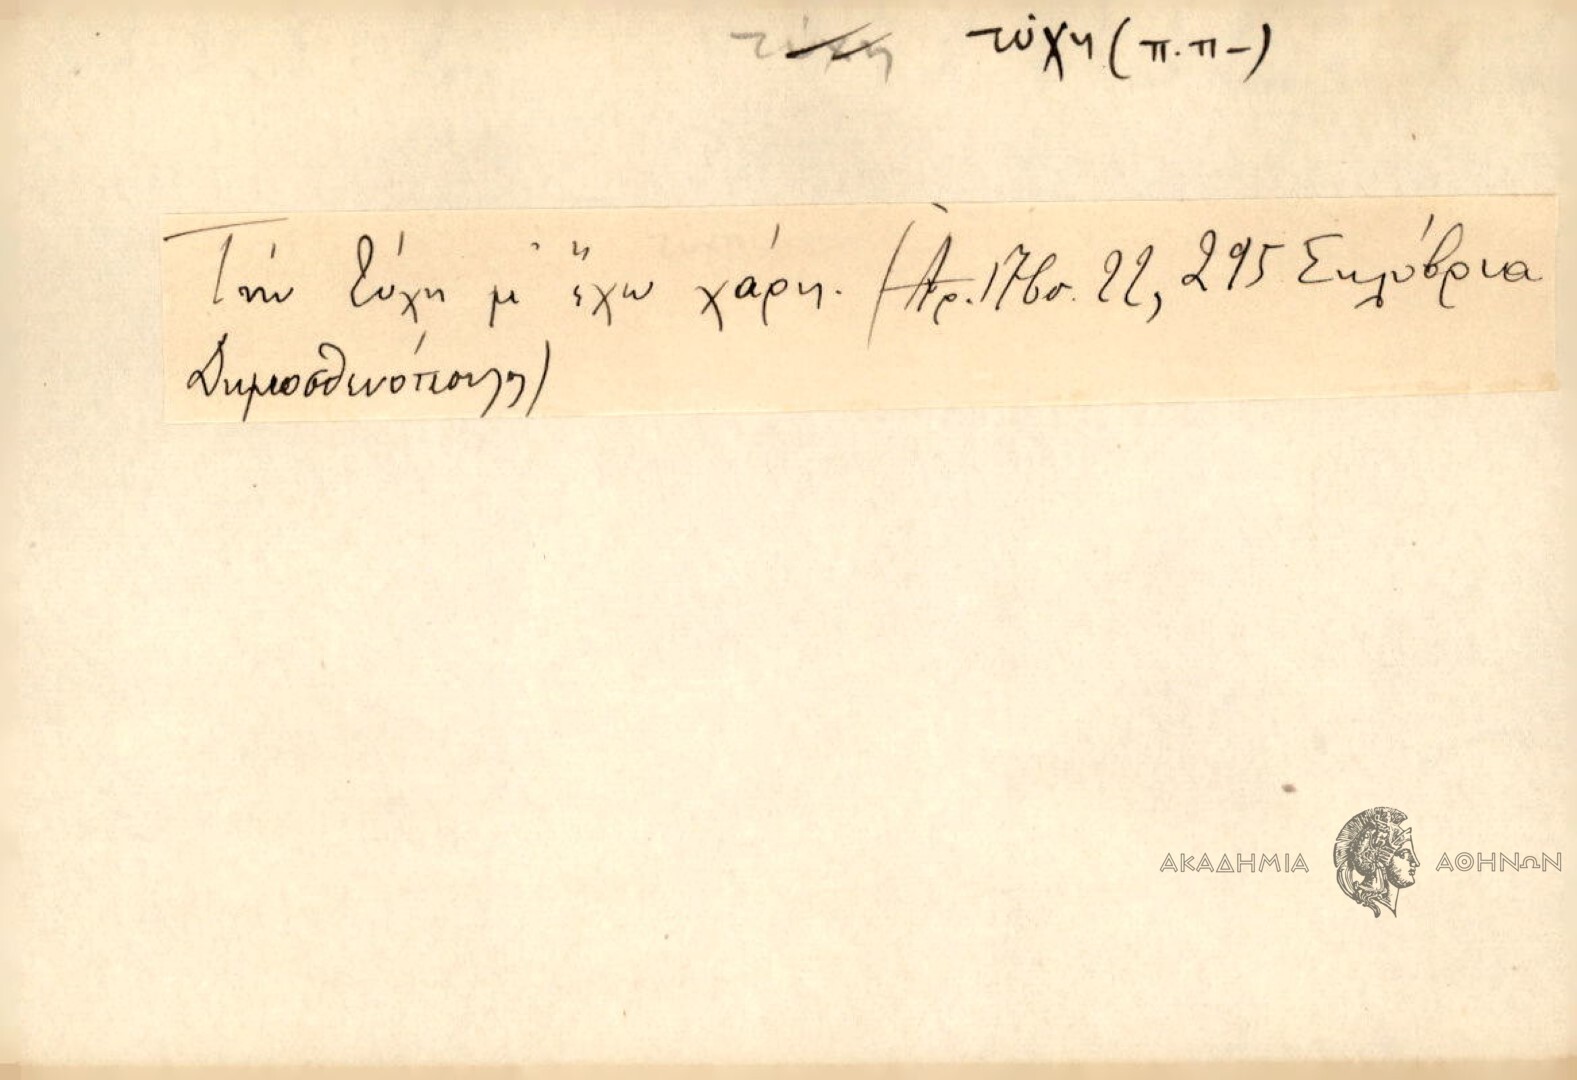 τύχη τύχη (π.π-)
Τήν τύχη μ' ἔχω χάρη. (Ἀρ. 1765. 22, 295 Σηλύβρια
Δημοσθενόπουλος)
ΑΚΑΔΗΜΙΑ ΑΘΗΝΩΝ